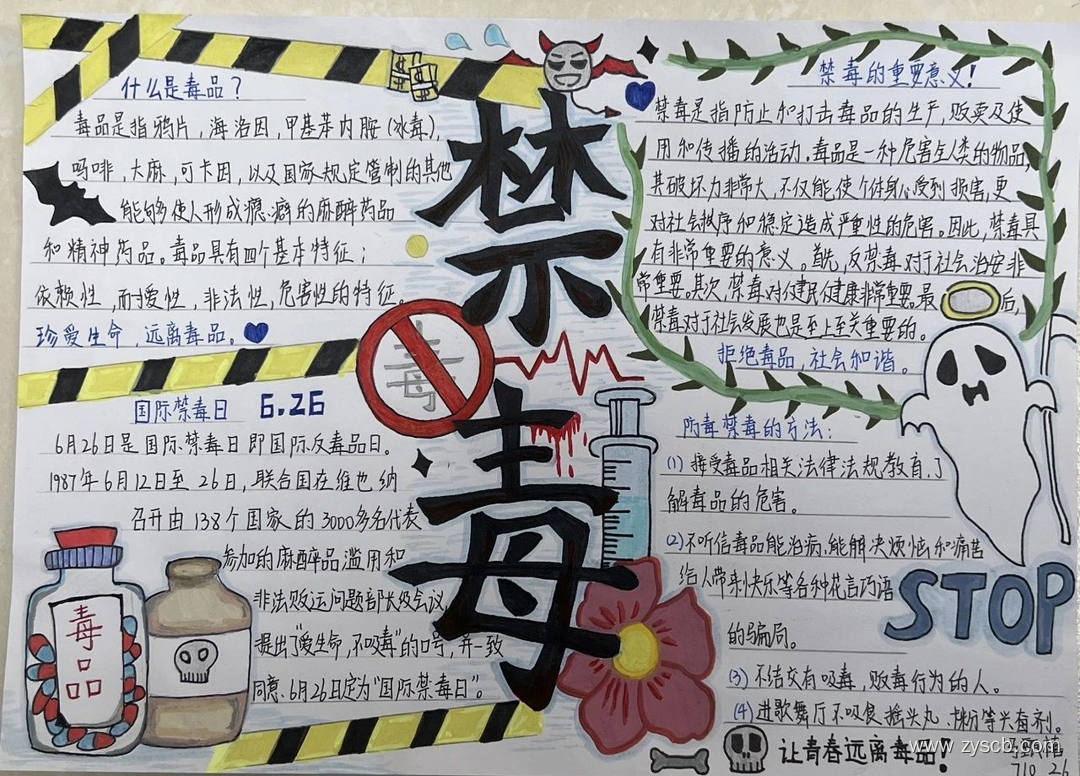 什么是毒品？
毒品是指鸦片，海洛因，甲基苯丙胺（冰毒），
吗啡，大麻，可卡因，以及国家规定管制的其他
能够使人形成瘾癖的麻醉药品
和精神药品。毒品具有四个基本特征；
依赖性，耐受性，非法性，危害性的特征。
珍爱生命，远离毒品。
国际禁毒日 6.26
6月26日是国际禁毒日即国际反毒品日。
1987年6月12日至26日，联合国在维也纳
召开由138个国家的3000多名代表
参加的麻醉品滥用和
非法贩运问题部长级会议，
提出了“爱生命，不吸毒”的口号，并一致
同意：6月26日定为“国际禁毒日”。
毒
品
禁
毒
毒
禁毒的重要意义！
禁毒是指防止和打击毒品的生产，贩卖及使
用和传播的活动。毒品是一种危害人类的物品，
其破坏力非常大，不仅能使个体身心受到损害，更
对社会秩序和稳定造成严重性的危害。因此，禁毒具
有非常重要的意义。首先，反禁毒对于社会治安非
常重要。其次，禁毒对健民健康非常重要。最后，
禁毒对于社会发展也是至上至关重要的。
拒绝毒品，社会和谐。
防毒禁毒的方法：
(1) 接受毒品相关法律法规，教育，了
解毒品的危害。
(2) 不听信毒品能治病，能解决烦恼和痛苦
给人带来快乐等各种花言巧语
的骗局。
(3) 不结交有吸毒，贩毒行为的人。
(4) 进歌舞厅不吸食摇头丸、K粉等兴奋剂。
STOP
让青春远离毒品！
www.zyscb.com
710 26